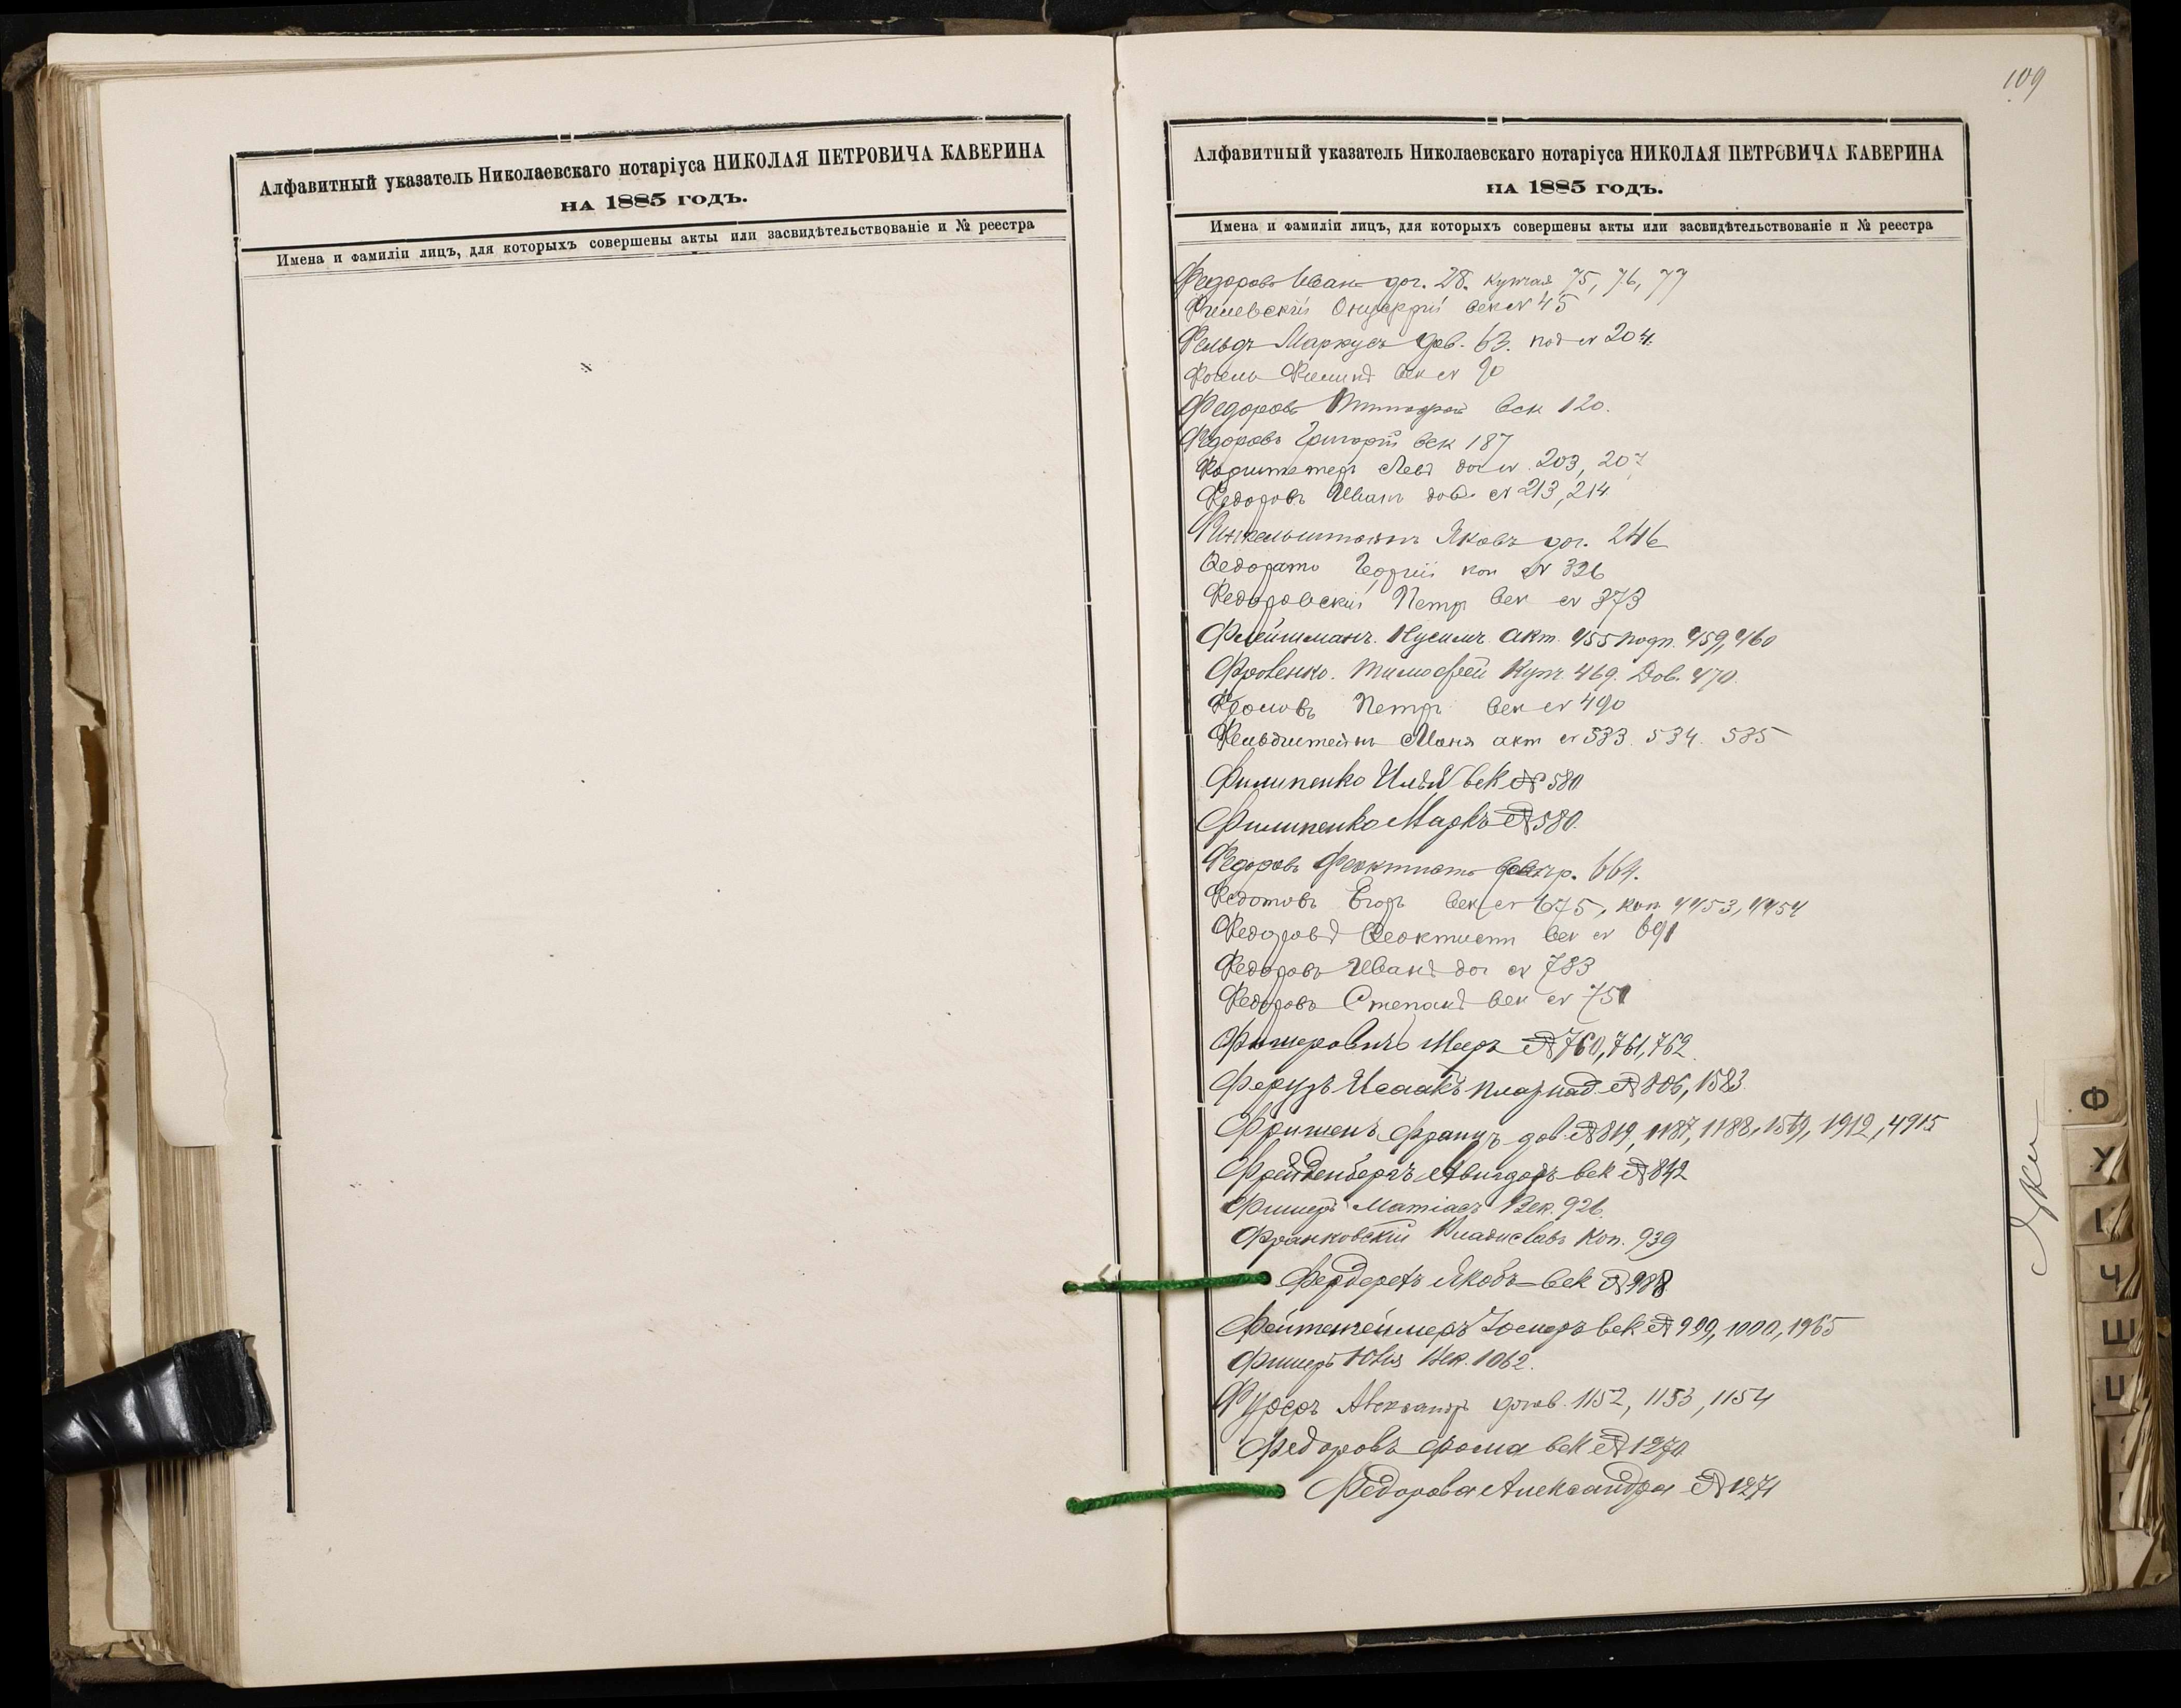 Алфавитный указатель Николаевскаго нотаріуса НИКОЛАЯ ПЕТРОВИЧА КАВЕРИНА
НА 1885 ГОДЪ.
Имена и фамиліи лицъ, для которыхъ совершены акты или засвидѣтельствованіе и № реестра
109
Алфавитный указатель Николаевскаго нотаріуса НИКОЛАЯ ПЕТРОВИЧА КАВЕРИНА
НА 1885 ГОДЪ.
Имена и фамиліи лицъ, для которыхъ совершены акты или засвидѣтельствованіе и № реестра
Федоровъ Иванъ дог. 28. купчая 75, 76, 77
век № 45
Фельдъ Маркусъ дов. 63. под № 204.
век № 90
Федоровъ Тимофей век 120.
Федоровъ Григорій век 187
Левъ дог № 203, 207
Федоровъ Иванъ дов. № 213, 214
Финкельштейнъ Яковъ дог. 246
Георгій коп № 326
Федоровскій Петръ век № 373
Флейшманъ. Нусимъ. акт. 455 подп. 459, 460
Фроленко. Тимофей Купч. 469. Дов. 470.
Фроловъ Петръ век № 490
Фельдштейнъ акт № 533. 534. 535
Филипенко Илья век № 580
Филипенко Маркъ № 580.
Федоровъ Феоктистъ 664.
Федотовъ Егоръ век № 675, коп 4453, 4454
Федоровъ Феоктистъ век № 691
Федоровъ Иванъ дог № 783
Федоровъ Степанъ век № 751
Фишеровичъ Мееръ № 760, 761, 762
Исаакъ № 806, 1583
Фришенъ Францъ дов. № 819, 1187, 1188, 1569, 1912, 4915
Фрейденбергъ Авигдоръ век № 842
Фишеръ Матіасъ Век. 926.
Франковскій Владиславъ Коп. 939
Якобъ век № 988
век № 999, 1000, 1965
Фишеръ Век. 1062.
Александръ догов. 1152, 1153, 1154
Федоровъ Фома век № 1270
Федорова Александра № 1271
Ф
Х
Ч
Ш